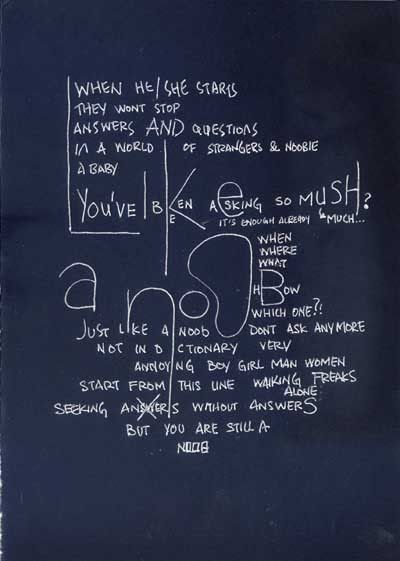 WHEN HE/SHE STARTS
THEY WONT STOP
ANSWERS AND QUESTIONS
IN A WORLD OF STRANGERS & NOOBIE
A BABY
YOU'VE BEEN ASKING SO MUSH?
IT'S ENOUGH ALREADY MUCH...
WHEN
WHERE
WHAT
a no B
HOW
WHICH ONE?!
JUST LIKE A NOOB DONT ASK ANYMORE
NOT IN DICTIONARY VERY
ANNOYING BOY GIRL MAN WOMEN
START FROM THIS LINE WALKING FREAKS
ALONE
SEEKING ANSWERS WITHOUT ANSWERS
BUT YOU ARE STILL A
NOOB